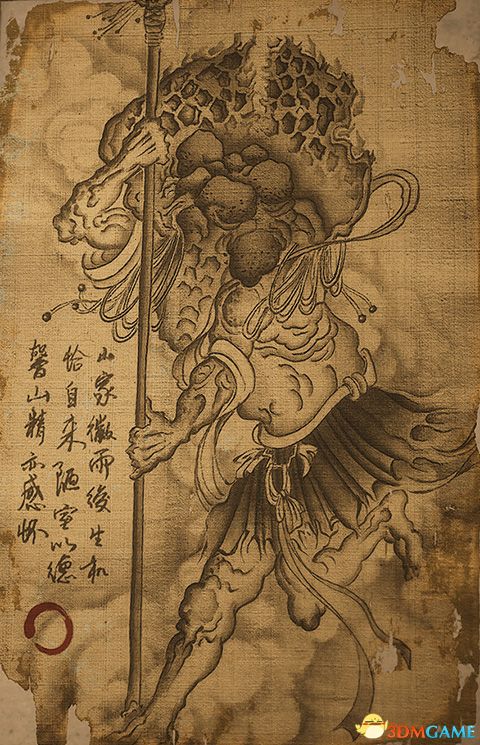 山家微雨後生机
恰自来陋室以德
馨山精亦感怀
3DMGAME